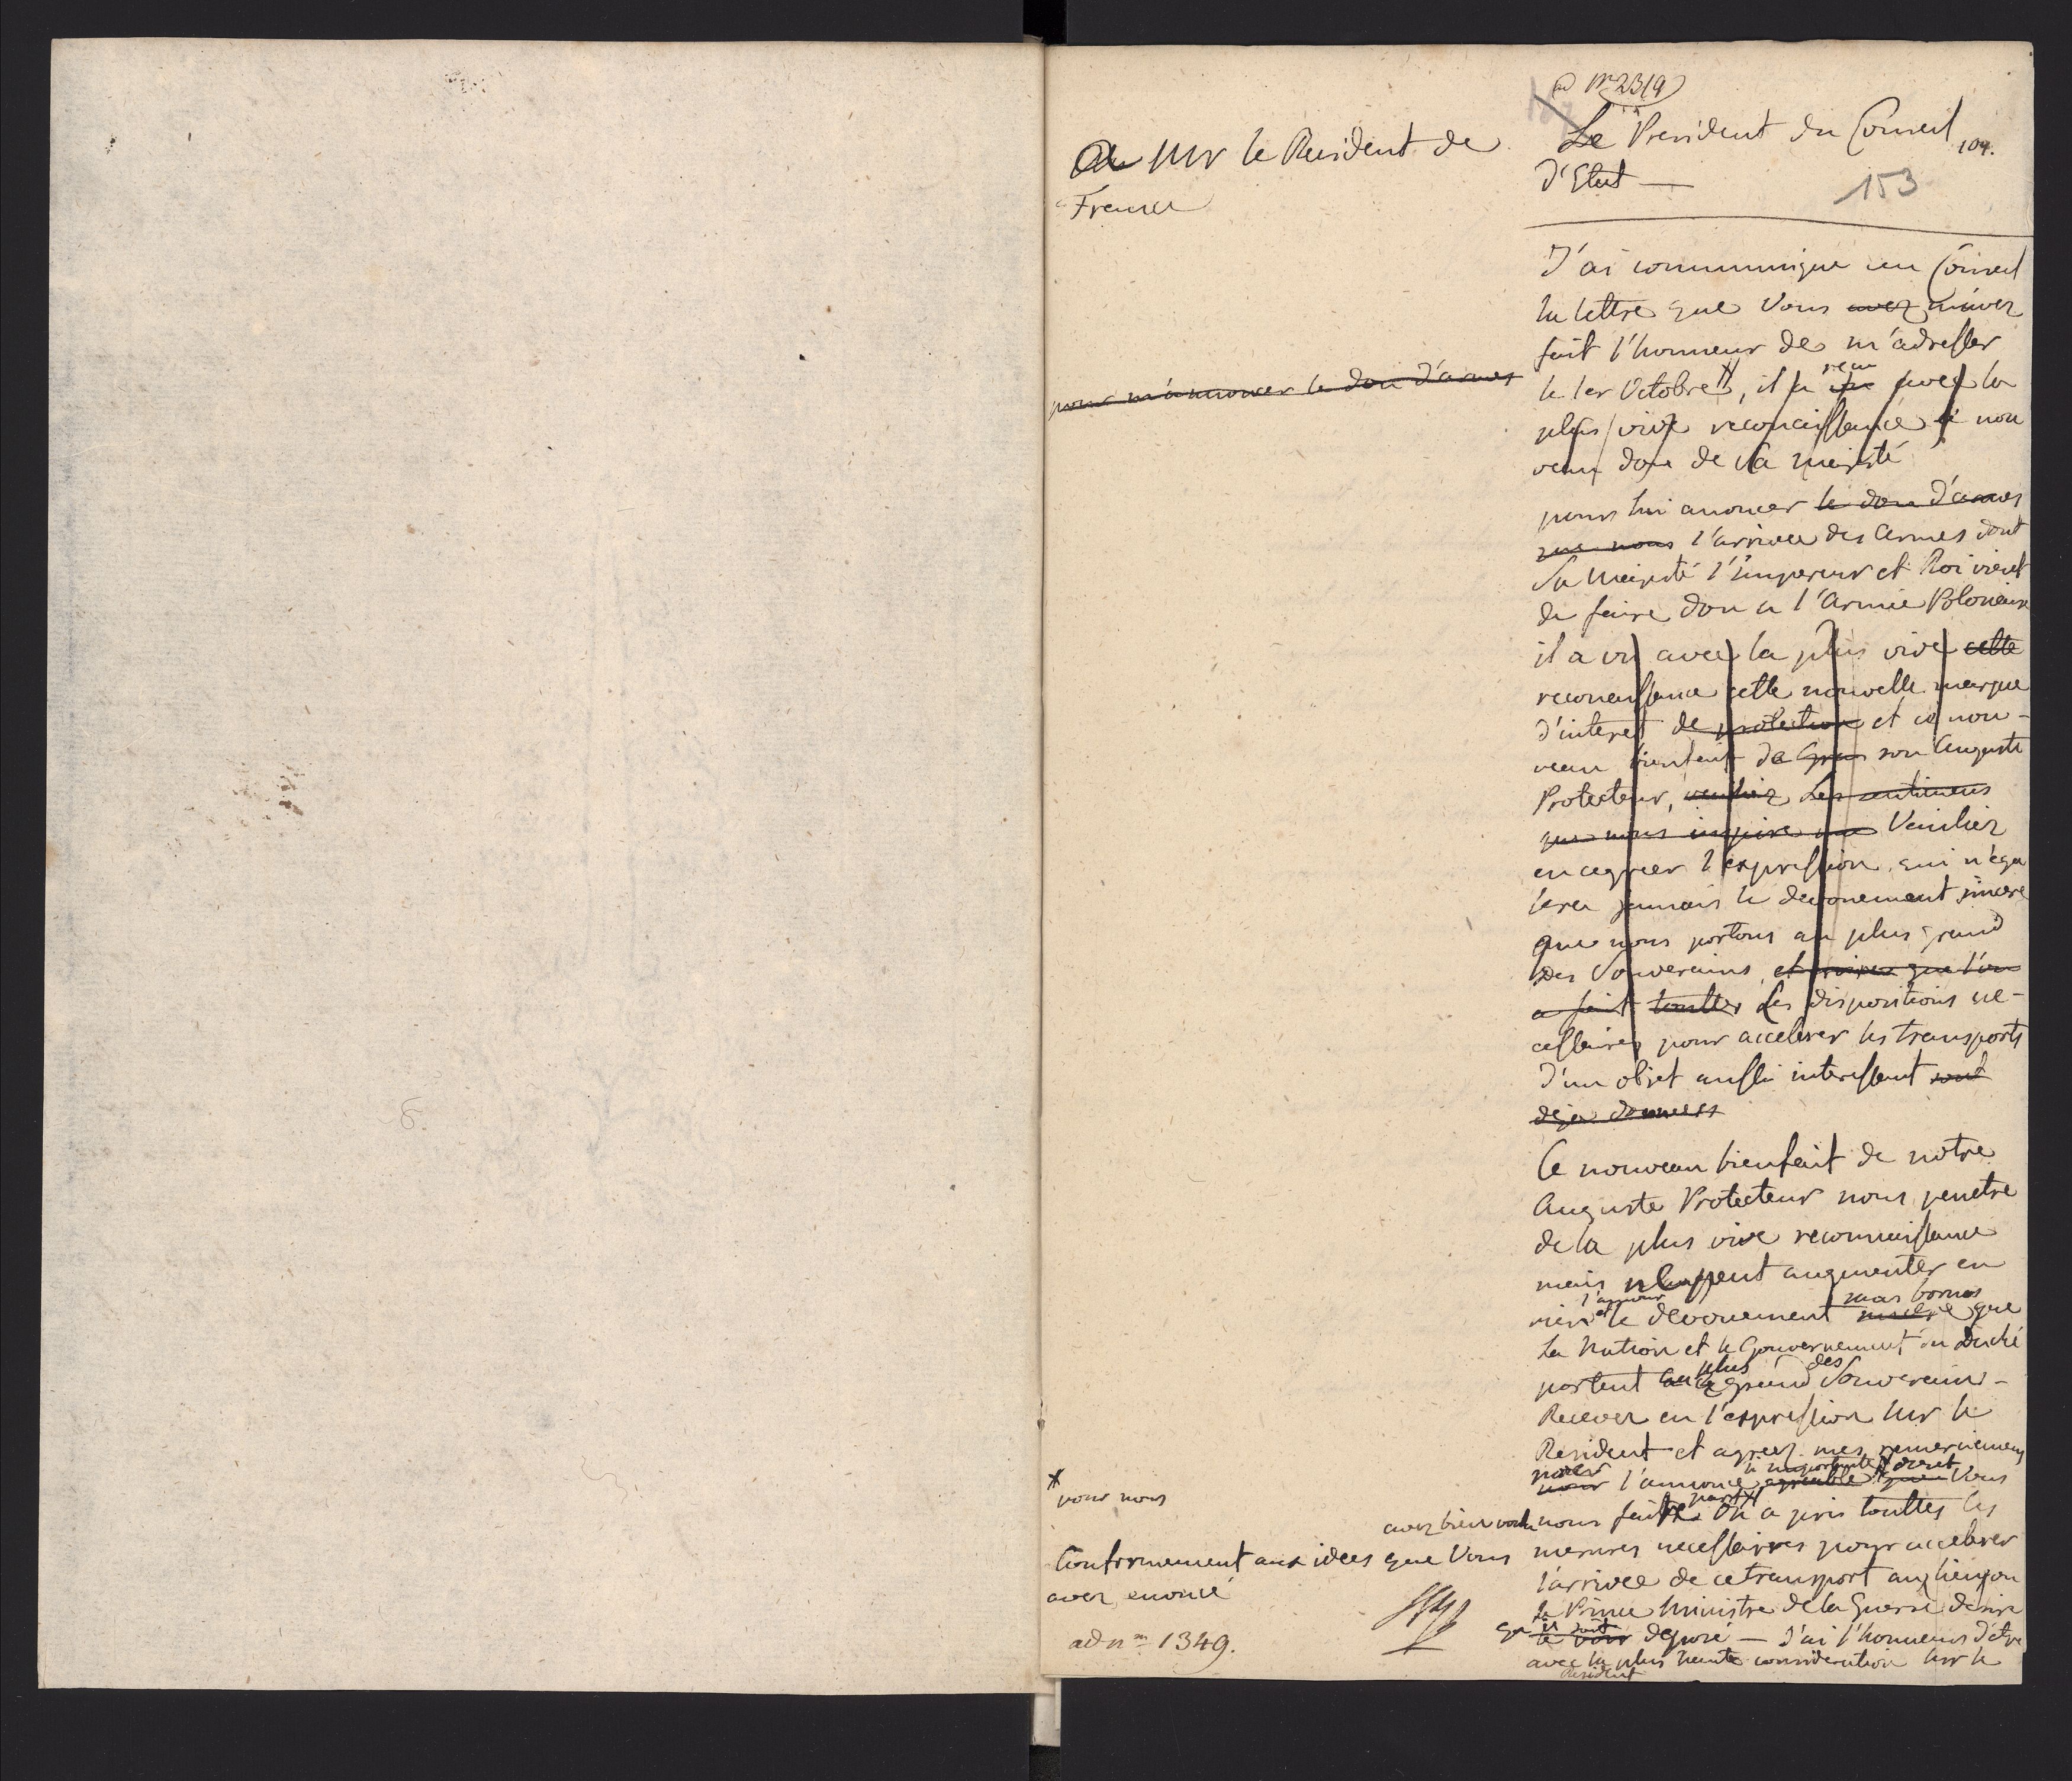 ad Nr 2319
Le President du Conseil
d'Etat —
104.
153
A Mr le Resident de
France
J'ai communiqué au Conseil
la lettre que Vous avez m'avez
fait l'honneur de m'adresser
le 1er Octobre, il a vu reçu avec la
plus vive reconaissance ce nou
veau don de Sa Majesté
pour m'annoncer le don d'armes
pour lui anoncer le don d'armes
que nous l'arrivée des Armes dont
Sa Majesté l'Empereur et Roi vient
de faire don a l'Armée Polonaise
il a vu avec la plus vive cette
reconaissance cette nouvelle marque
d'interet de protection et ce nou-
veau bienfait de son Auguste
Protecteur, veuillez Les sentimens
que nous inspire Veuillez
en agreer l'expression qui n'ega
lera jamais le devouement sincere
que nous portons au plus grand
des Souverains, et que l'on
a fait touttes Les dispositions ne-
cessaires pour accelerer les transports
d'un objet aussi interessant sont
deja données
Ce nouveau bienfait de notre
Auguste Protecteur nous penetre
de la plus vive reconnaissance
mais ne peut augmenter en
rien l'amour et le devouement sans bornes que
La Nation et le Gouvernement du Duché
portent au plus grand des Souverain-
Recevez en l'expression Mr le
Resident et agreez mes remerciemens
pour l'annonce si importante agreable que Vous
avez bien voulu nous faire part On a pris touttes les
mesures necessaires pour accelerer
l'arrivée de ce transport au lieu ou
Le Prince Ministre de la Guerre desire
qu'il soit le voir deposé — J'ai l'honneur d'etre
avec la plus haute consideration Mr le
Resident
pour nous
Conformement aux idées que Vous
avez enoncé
ad nm 1349.